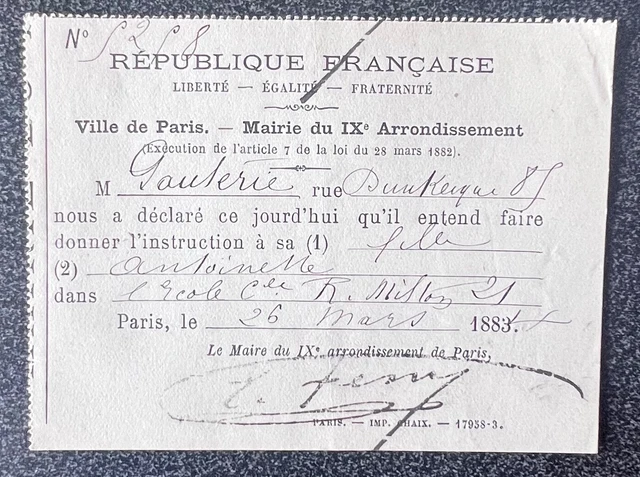 Nº 5258
RÉPUBLIQUE FRANÇAISE
LIBERTÉ — ÉGALITÉ — FRATERNITÉ
Ville de Paris. — Mairie du IXe Arrondissement
(Exécution de l'article 7 de la loi du 28 mars 1882).
M Gauterie rue Dunkerque 85
nous a déclaré ce jourd'hui qu'il entend faire
donner l'instruction à sa (1) fille
(2) Antoinette
dans l'Ecole Cle R. Milton 21
Paris, le 26 Mars 1884
Le Maire du IXe arrondissement de Paris,
PARIS. — IMP. CHAIX. — 17958-3.